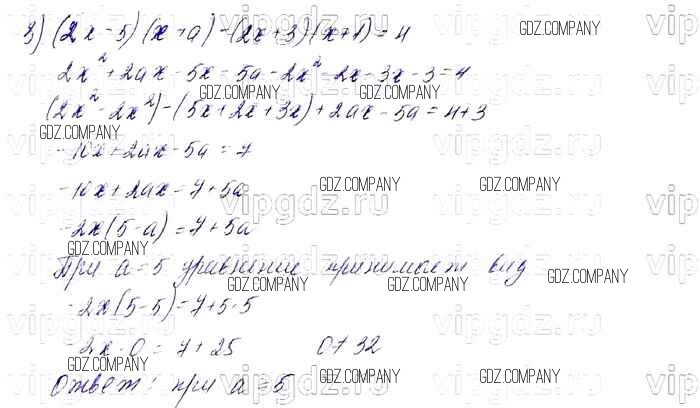 3) (2x-5)(x+a)-(2x+3)(x+1)=4
2x²+2ax-5x-5a-2x²-2x-3x-3=4
(2x²-2x²)-(5x+2x+3x)+2ax-5a=4+3
-10x+2ax-5a=7
-10x+2ax=7+5a
-2x(5-a)=7+5a
При a=5 уравнение принимает вид
-2x(5-5)=7+5·5
-2x·0=7+25 0≠32
Ответ: при a=5
GDZ.COMPANY
vipgdz.ru